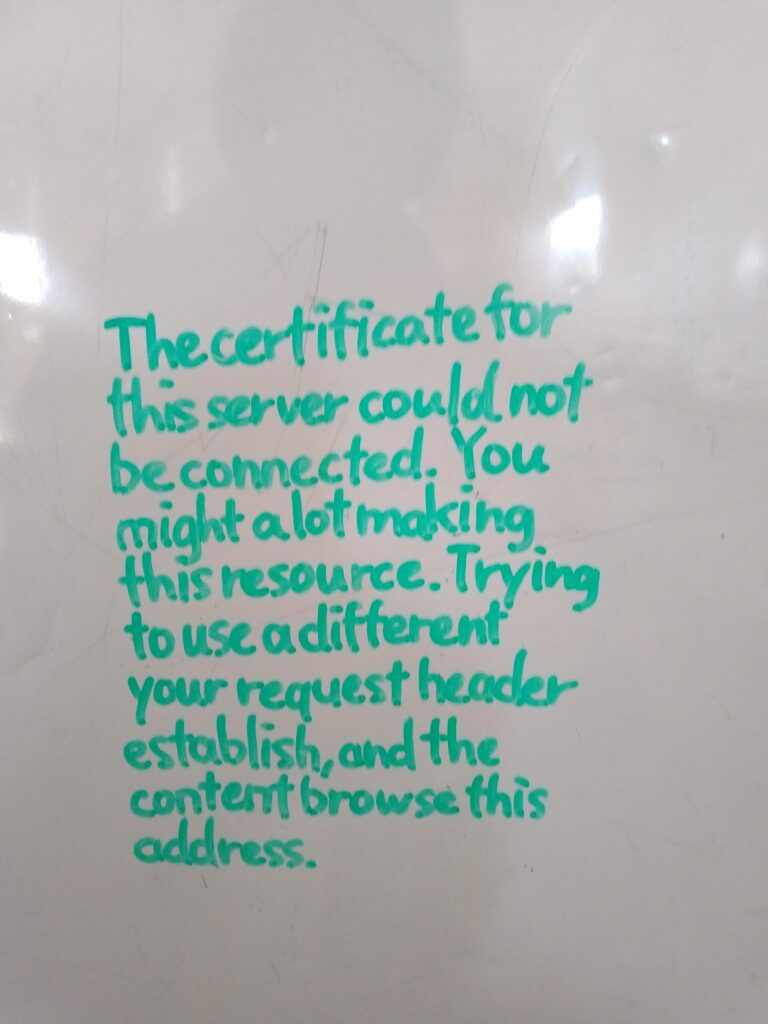 The certificate for
this server could not
be connected. You
might a lot making
this resource. Trying
to use a different
your request header
establish, and the
content browse this
address.